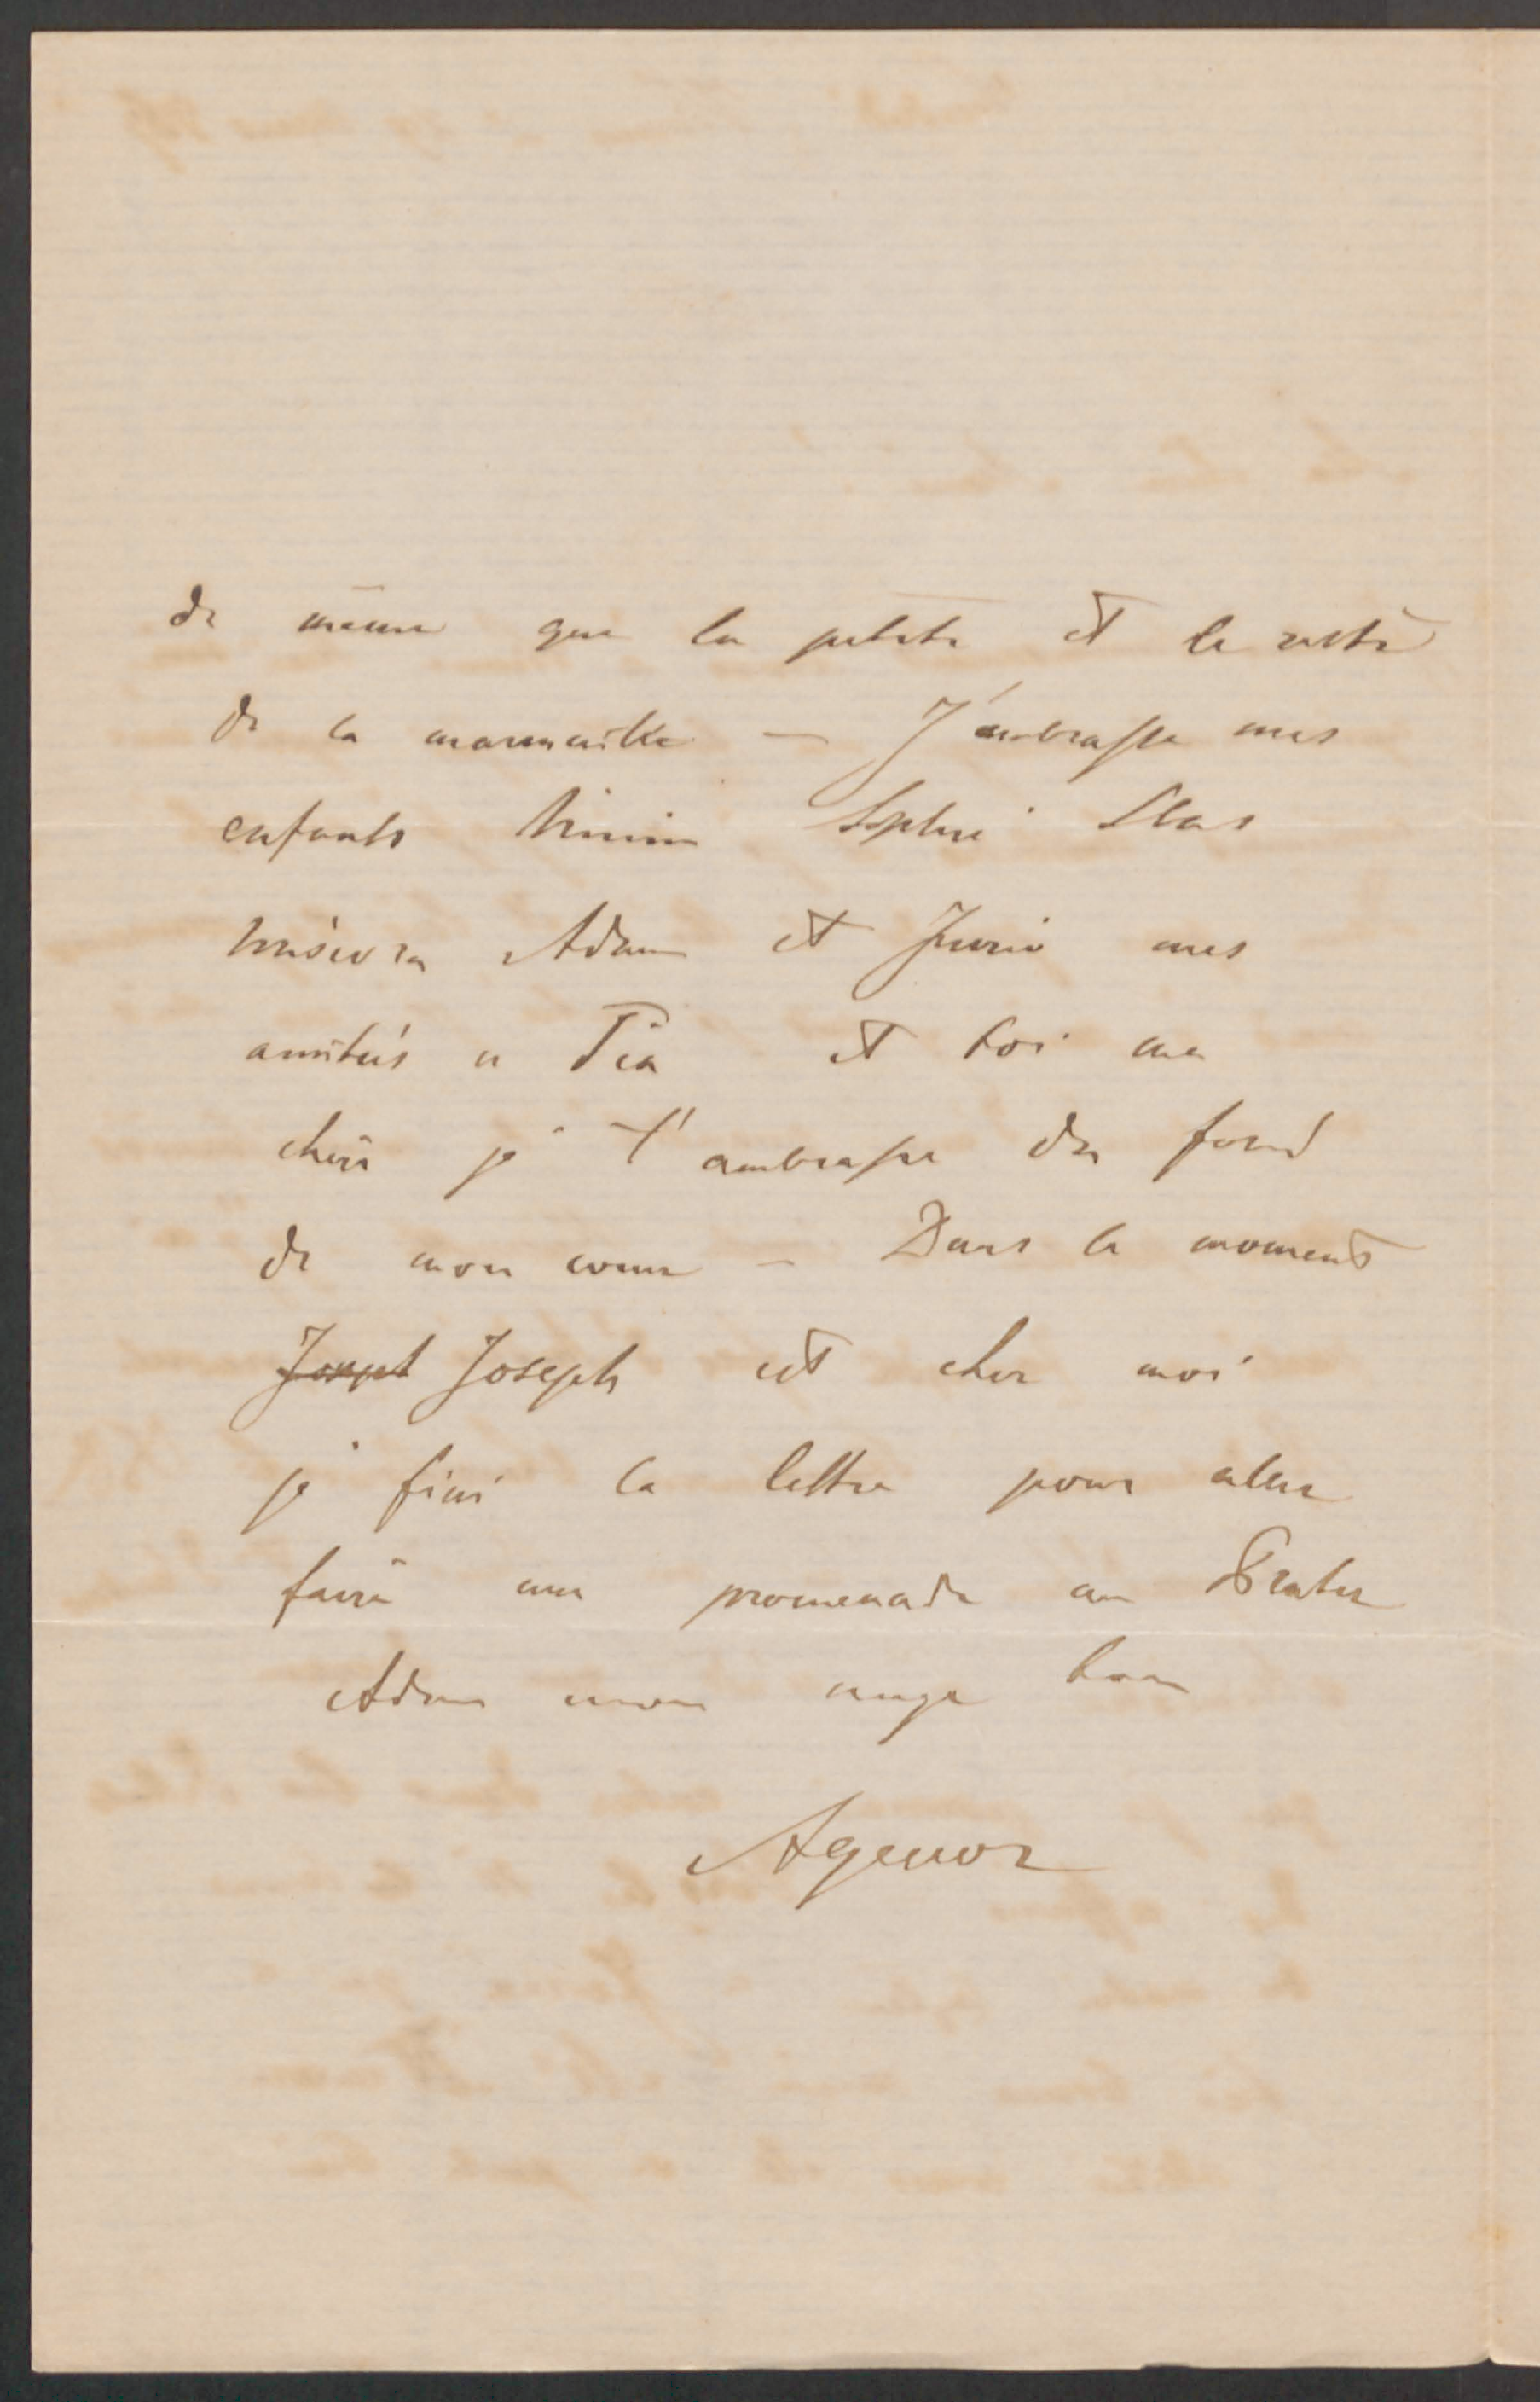 de même que la petite et le reste
de la marmaille — J'embrasse mes
enfants Minin Sophie Stas
Adam et Junio mes
amitiés a Pia et toi ma
chere je t'ambrasse du fond
de mon coeur — Dans le moment
Joseph Joseph est cher moi
je fini la lettre pour aler
faire une promenade au Prater
Adieu mon ange ton
Agenor